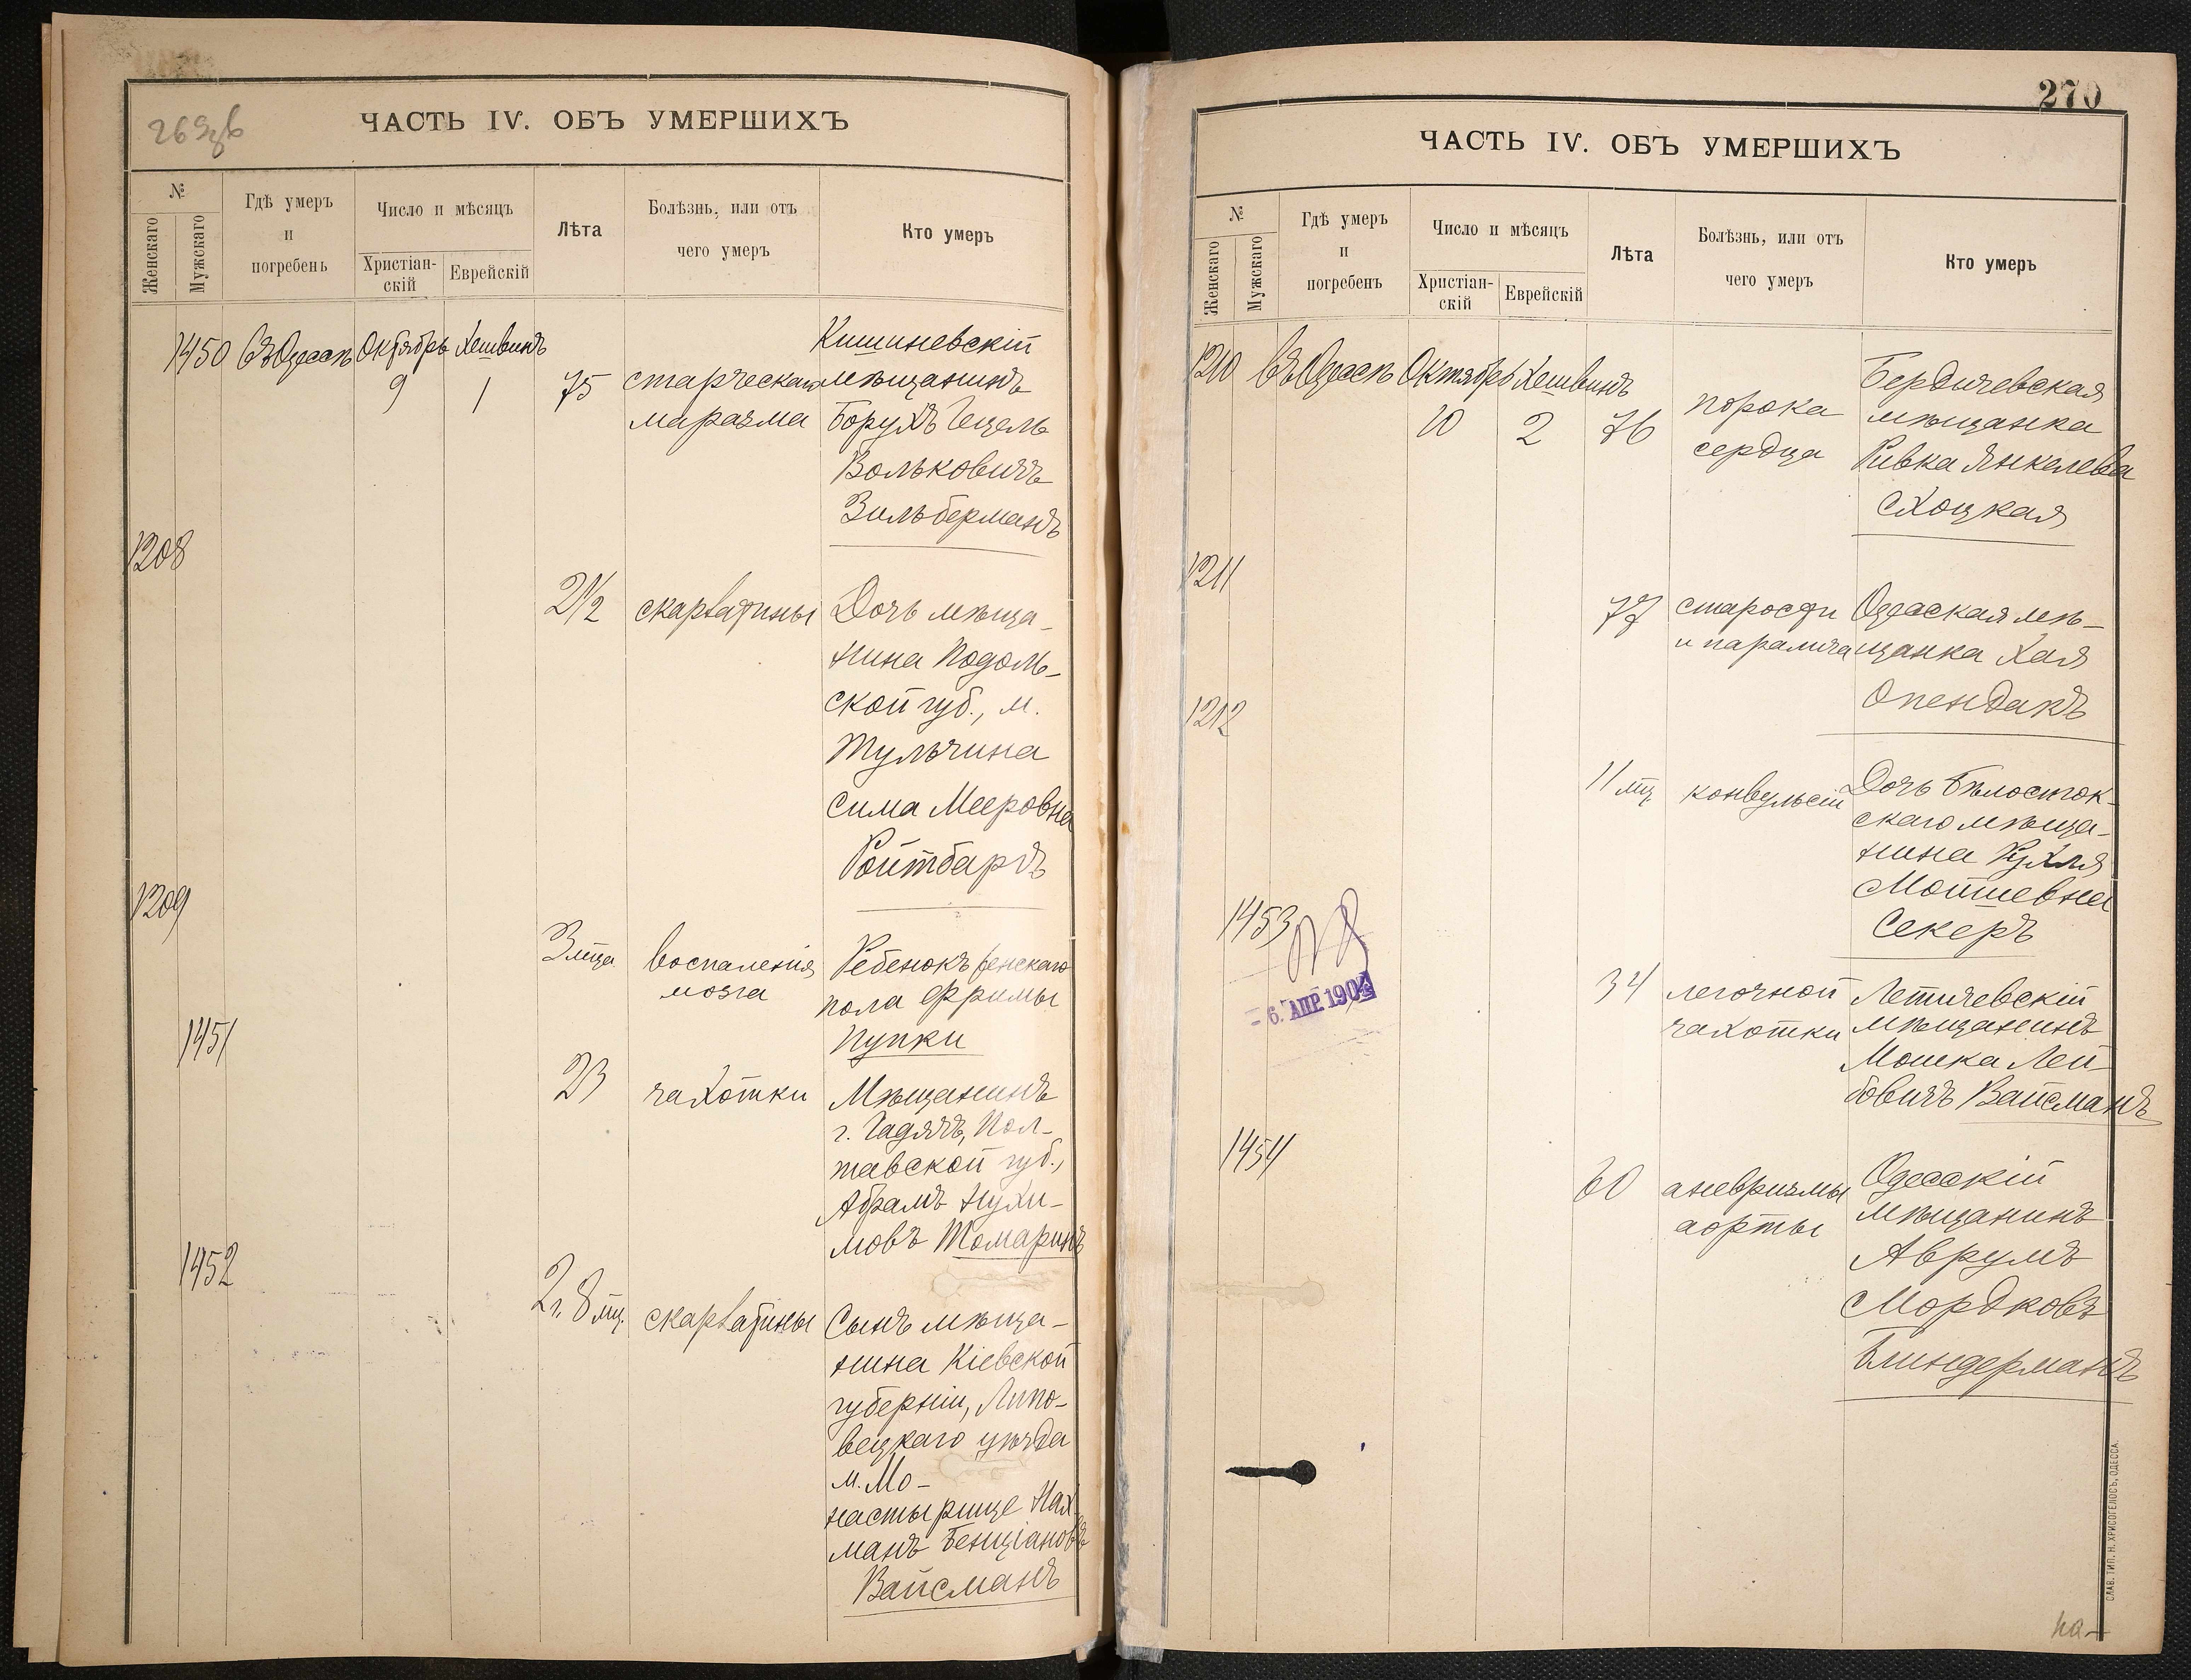 269об
ЧАСТЬ IV. ОБЪ УМЕРШИХЪ
№
Женскаго
Мужскаго
Гдѣ умеръ
и
погребенъ
Число и мѣсяцъ
Христіан-
скій
Еврейскій
Лѣта
Болѣзнь, или отъ
чего умеръ
Кто умеръ
1450 въ Одессѣ Октябрь Хешвинъ
9 1 75 старческая
маразма
Кишиневскій
мѣщанинъ
Борухъ Гецель
Вольковичъ
Зильберманъ
1208
2 1/2 скарлатины
Дочь мѣща-
нина Подоль-
ской губ., м.
Тульчина
Сима Мееровна
Ройтбардъ
1209
3 мѣца воспаленія
мозга
Ребенокъ женскаго
пола Фримы
Пупки
1451
23 чахотки
Мѣщанинъ
г. Гадячъ, Пол-
тавской губ.,
Абрамъ Нухи-
мовъ Томаринъ
1452
2 г. 8 мц. скарлатины
Сынъ мѣща-
нина Кіевской
губерніи, Липо-
вецкаго уѣзда
м. Мо-
настырище Нах-
манъ Бенціановъ
Вайсманъ
270
ЧАСТЬ IV. ОБЪ УМЕРШИХЪ
№
Женскаго
Мужскаго
Гдѣ умеръ
и
погребенъ
Число и мѣсяцъ
Христіан-
скій
Еврейскій
Лѣта
Болѣзнь, или отъ
чего умеръ
Кто умеръ
1210 въ Одессѣ Октябрь Хешвинъ
10 2 76 порока
сердца
Бердичевская
мѣщанка
Ривка Янкелева
Схоцкая
1211
77 старости
и паралича
Одесская мѣ-
щанка Хая
Опендакъ
1212
11 мц. конвульсіи
Дочь Бѣлосток-
скаго мѣща-
нина Рухля
Мошіевна
Секеръ
1453
- 6. АПР. 1904
34 легочной
чахотки
Летичевскій
мѣщанинъ
Мошка Лей-
бовичъ Вайсманъ
1454
60 аневризмы
аорты
Одесскій
мѣщанинъ
Аврумъ
Мордковъ
Блиндерманъ
СЛАВ. ТИП. Н. ХРИСОГЕЛОСЪ, ОДЕССА.
на-